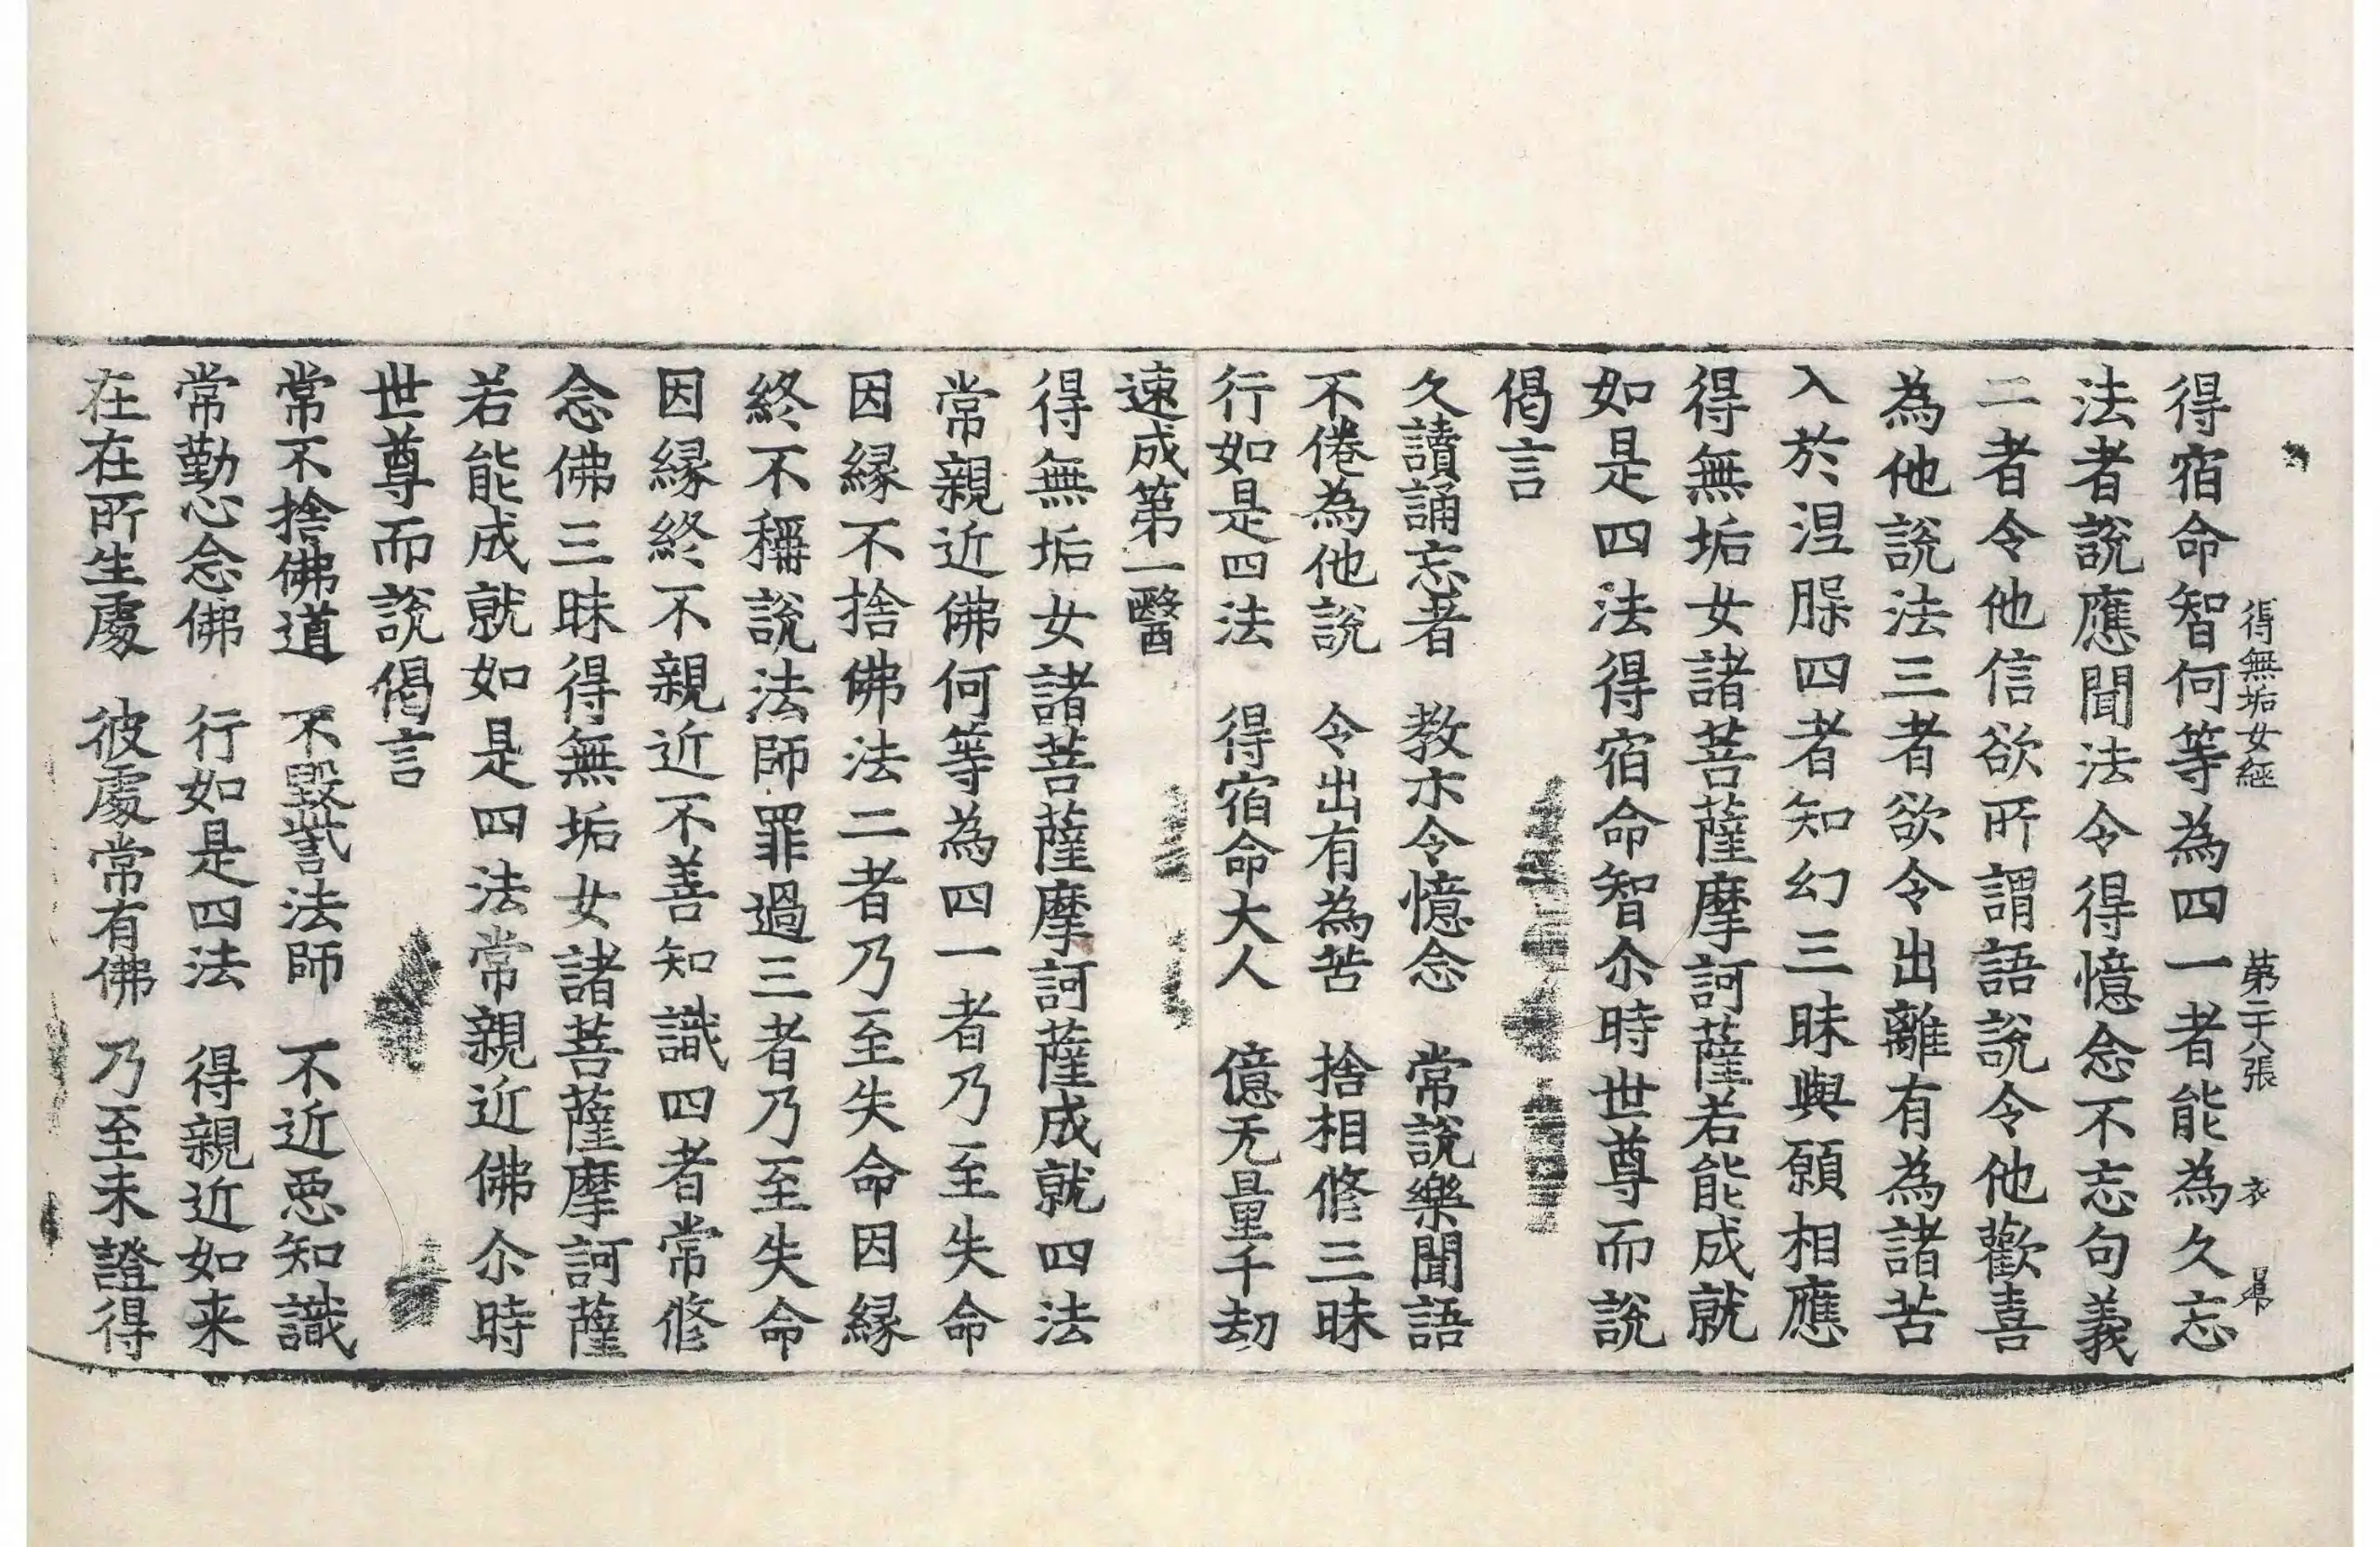 得無垢女經 第二十八張 衣
得宿命智何等為四一者能為久忘
法者說應聞法令得憶念不忘句義
二者令他信欲所謂語說令他歡喜
為他說法三者欲令出離有為諸苦
入於涅槃四者知幻三昧與願相應
得無垢女諸菩薩摩訶薩若能成就
如是四法得宿命智尒時世尊而說
偈言
久讀誦忘者 教亦令憶念 常說樂聞語
不倦為他說 令出有為苦 捨相修三昧
行如是四法 得宿命大人 億无量千劫
速成第一醫
得無垢女諸菩薩摩訶薩成就四法
常親近佛何等為四一者乃至失命
因緣不捨佛法二者乃至失命因緣
終不稱說法師罪過三者乃至失命
因緣終不親近不善知識四者常修
念佛三昧得無垢女諸菩薩摩訶薩
若能成就如是四法常親近佛尒時
世尊而說偈言
常不捨佛道 不毀訾法師 不近惡知識
常勤心念佛 行如是四法 得親近如来
在在所生處 彼處常有佛 乃至未證得